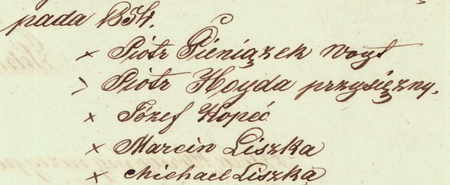 pada 1854.
× Piotr Pieniązek woyt
> Piotr Hoyda przysiężny.
× Józef Kopeć
× Marcin Liszka
× Michael Liszka